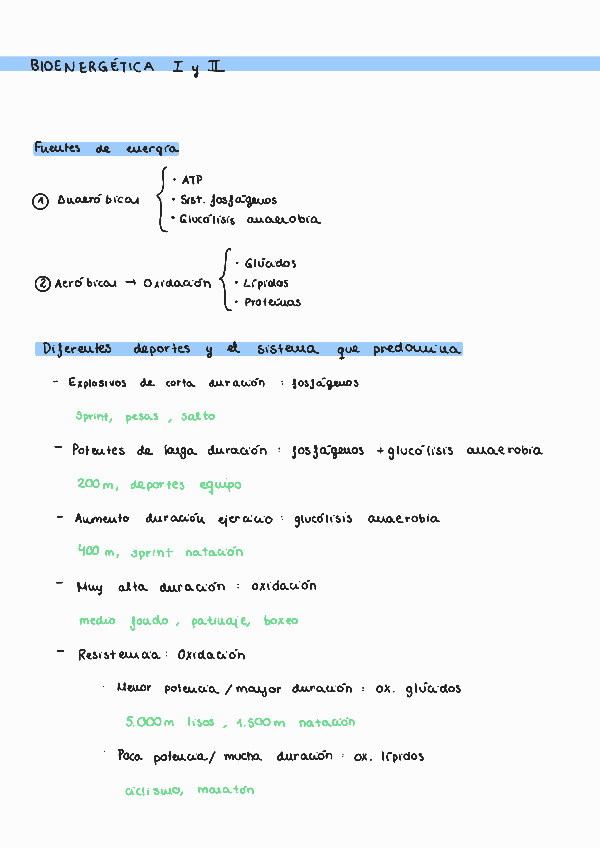 BIOENERGÉTICA I y II
Fuentes de energía
① Anaeróbicas
· ATP
· Sist. fosfágenos
· Glucólisis anaerobia
② Aeróbicas → Oxidación
· Glúcidos
· Lípidos
· Proteínas
Diferentes deportes y el sistema que predomina
- Explosivos de corta duración : fosfágenos
Sprint, pesas , salto
- Potentes de larga duración : fosfágenos + glucólisis anaerobia
200 m, deportes equipo
- Aumento duración ejercicio : glucólisis anaerobia
400 m, sprint natación
- Muy alta duración : oxidación
medio fondo , patinaje, boxeo
- Resistencia : Oxidación
· Menor potencia / mayor duración : ox. glúcidos
5.000 m lisos , 1.500 m natación
· Poca potencia / mucha duración : ox. lípidos
ciclismo, maratón